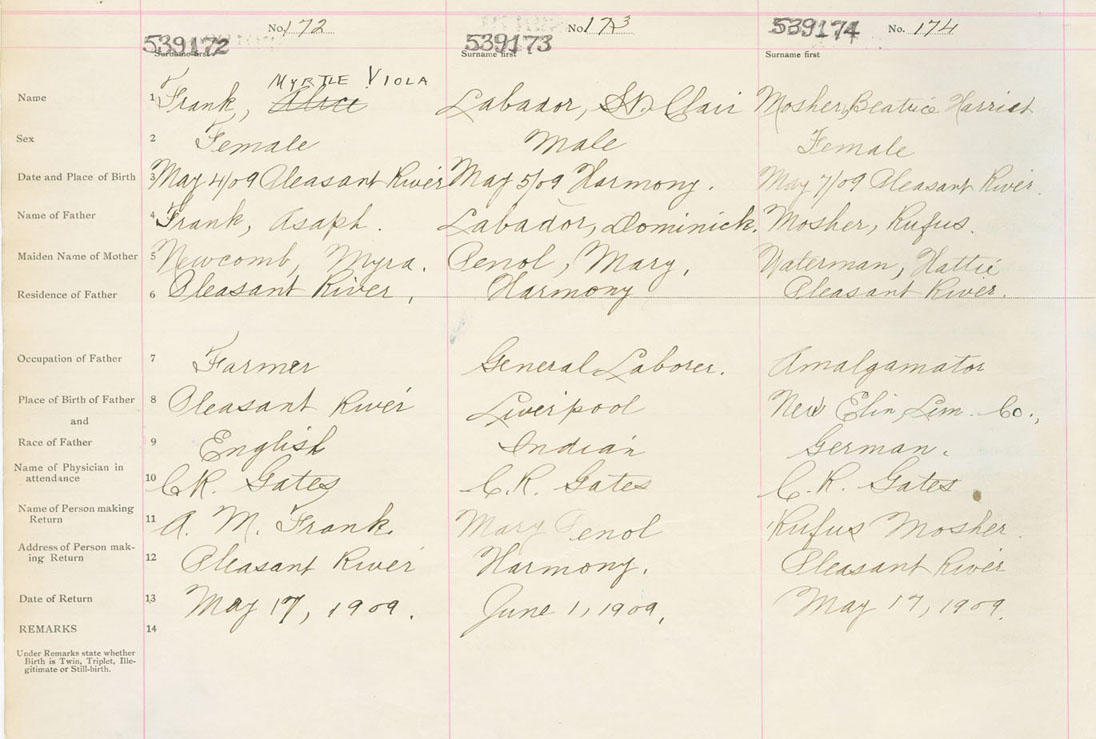 No. 172 No. 173 539174 No. 174
539172 539173
Surname first Surname first Surname first
MYRTLE VIOLA
Name 1 Frank, Alice Labador, St. Clair Mosher, Beatrice Harriet
Sex 2 Female Male Female
Date and Place of Birth 3 May 4/09 Pleasant River May 5/09 Harmony. May 7/09 Pleasant River.
Name of Father 4 Frank, Asaph. Labador, Dominick. Mosher, Rufus.
Maiden Name of Mother 5 Newcomb, Myra. Penol, Mary, Waterman, Hattie
Residence of Father 6 Pleasant River, Harmony Pleasant River.
Occupation of Father 7 Farmer General Laborer. Amalgamator
Place of Birth of Father 8 Pleasant River Liverpool New Lun. Co.,
and
Race of Father 9 English Indian German.
Name of Physician in
attendance 10 C.R. Gates C.R. Gates C.R. Gates
Name of Person making
Return 11 A. M. Frank. Mary Penol Rufus Mosher.
Address of Person mak-
ing Return 12 Pleasant River Harmony. Pleasant River
Date of Return 13 May 17, 1909. June 1, 1909, May 17, 1909.
REMARKS 14
Under Remarks state whether
Birth is Twin, Triplet, Ille-
gitimate or Still-birth.